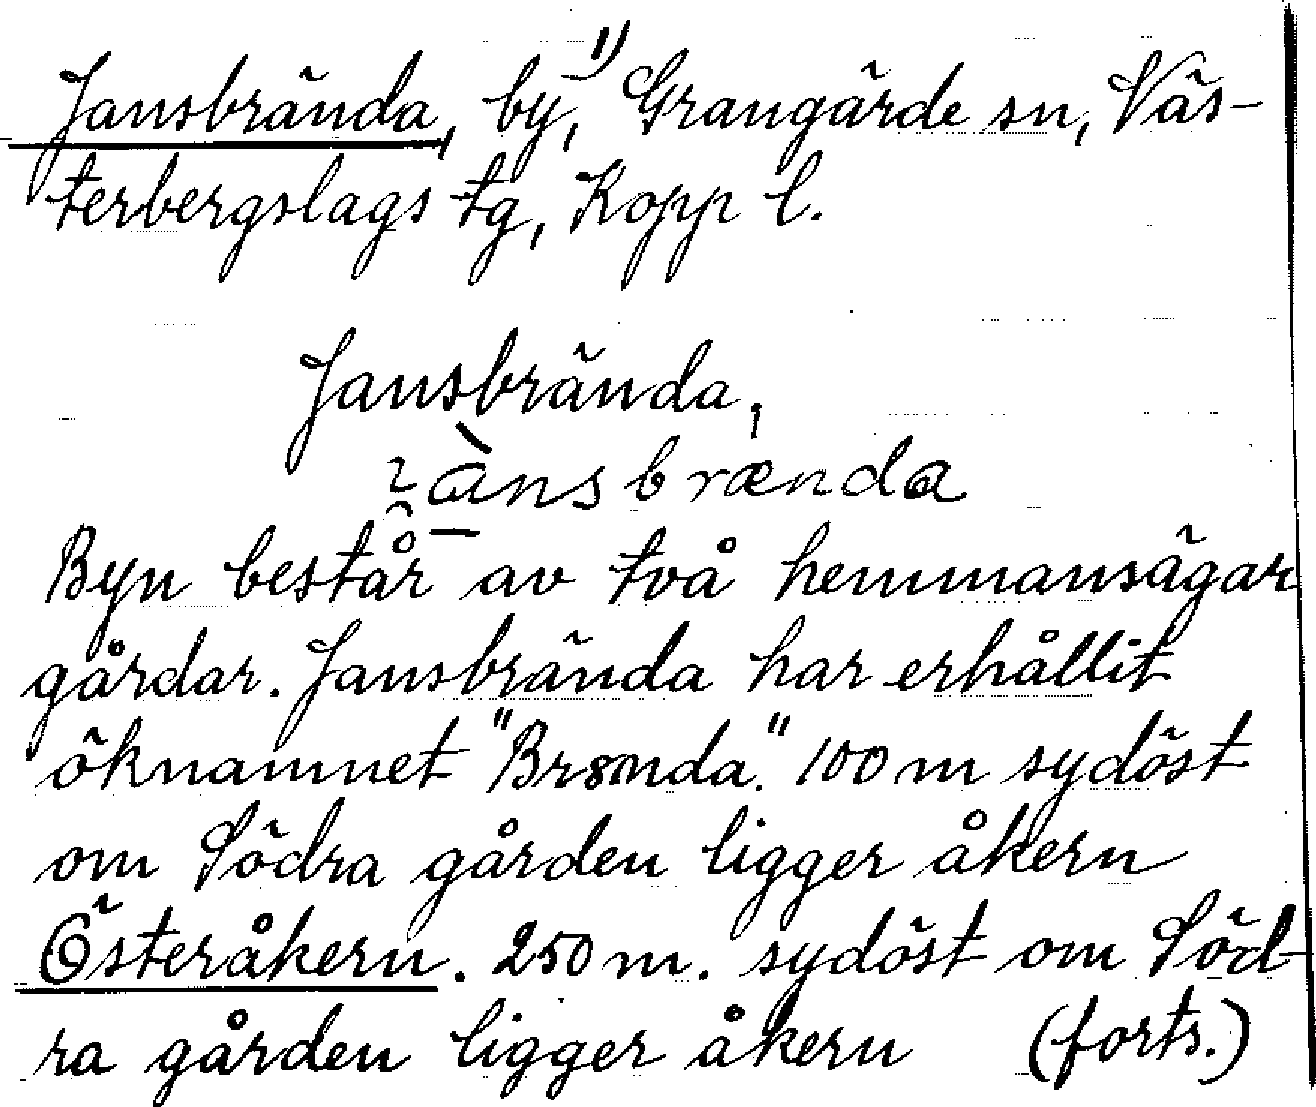 Jansbrända, by,¹⁾ Grangärde sn, Väs-
terbergslags tg, Kopp l.
Jansbrända,
Byn består av två hemmansägar
gårdar. Jansbrända har erhållit
öknamnet "Brønda." 100 m sydöst
om Södra gården ligger åkern
Österåkern. 250 m. sydöst om Söd-
ra gården ligger åkern (forts.)